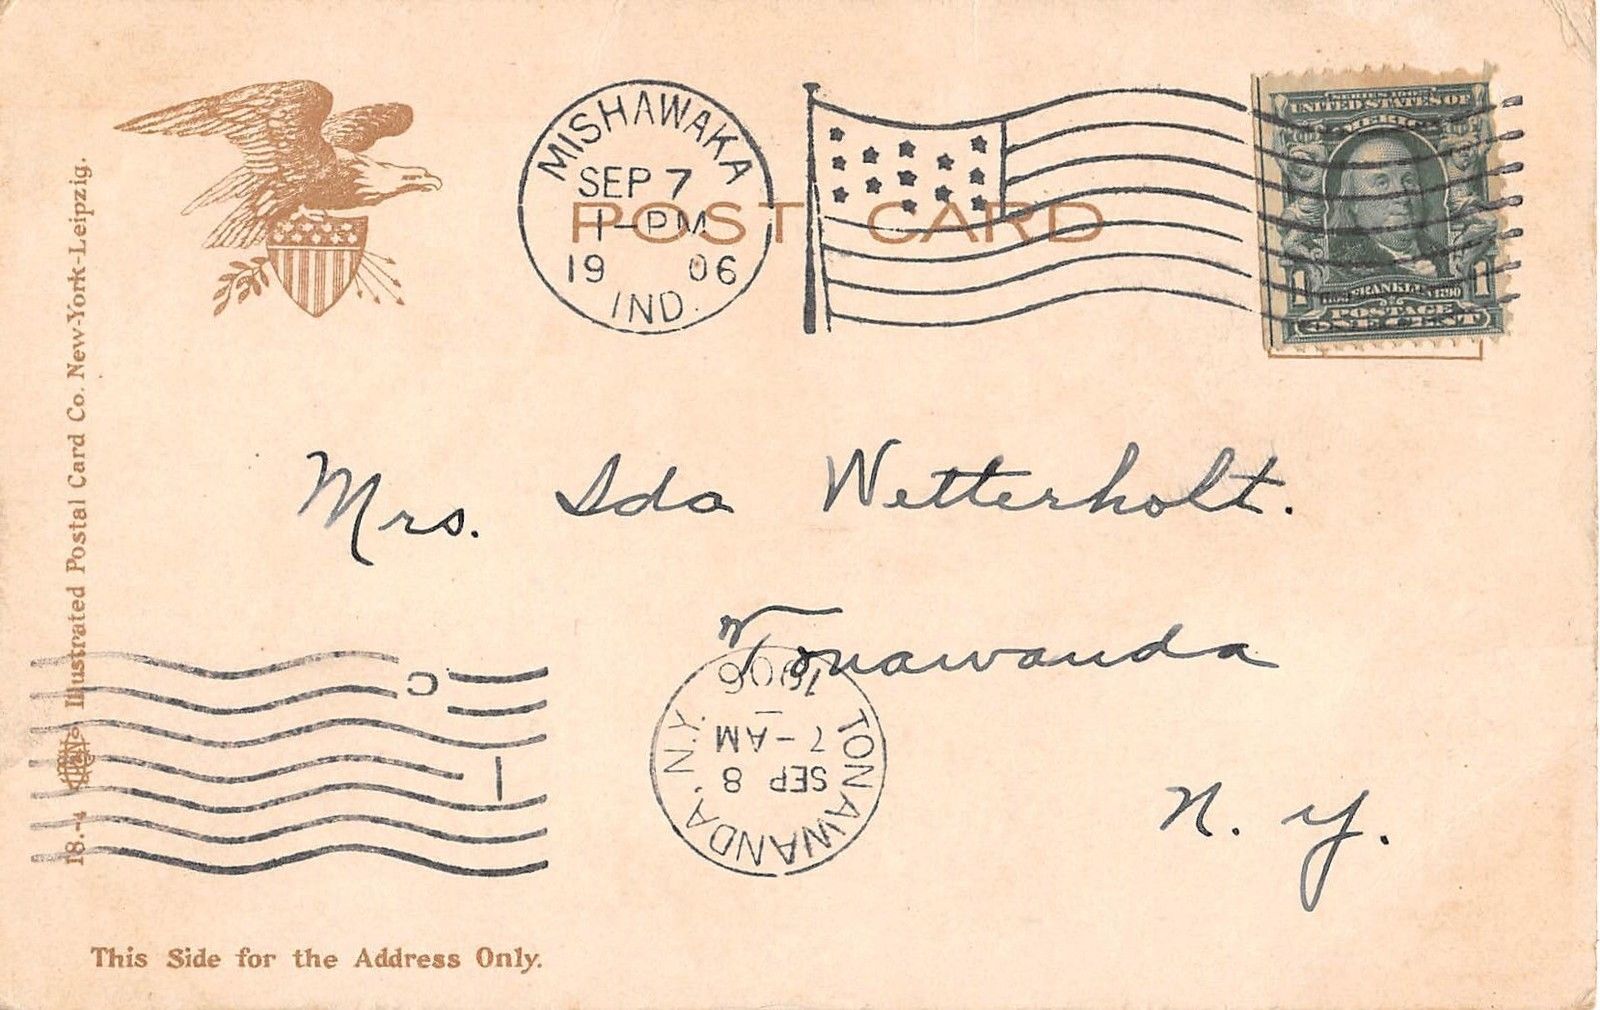 MISHAWAKA
SEP 7
1-PM
19 06
IND.
POST CARD
SERIES 1902
UNITED STATES OF
AMERICA
1 1
FRANKLIN
1706 1790
POSTAGE
ONE CENT
Mrs. Ida Wetterholt.
Tonawanda
N. Y.
TONAWANDA, N.Y.
SEP 8
7-AM
1906
C
1
18.-4 Illustrated Postal Card Co. New-York-Leipzig.
This Side for the Address Only.